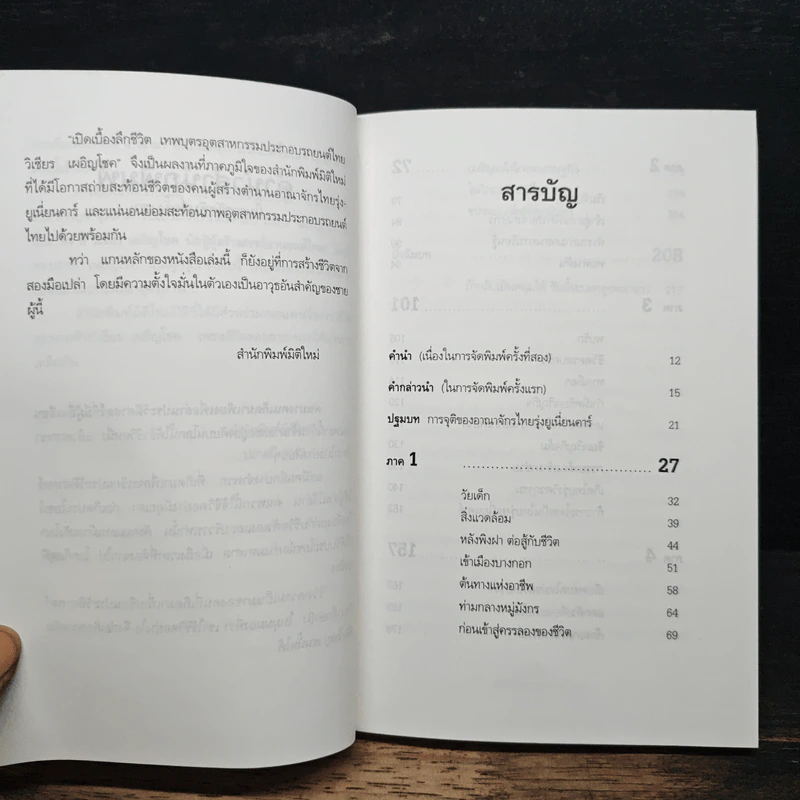 "เปิดเบื้องลึกชีวิต เทพบุตรอุตสาหกรรมประกอบรถยนต์ไทย
วิเชียร เผอิญโชค" จึงเป็นผลงานที่ภาคภูมิใจของสำนักพิมพ์มิติใหม่
ที่ได้มีโอกาสถ่ายสะท้อนชีวิตของคนผู้สร้างตำนานอาณาจักรไทยรุ่ง-
ยูเนี่ยนคาร์ และแน่นอนย่อมสะท้อนภาพอุตสาหกรรมประกอบรถยนต์
ไทยไปด้วยพร้อมกัน
ทว่า แกนหลักของหนังสือเล่มนี้ ก็ยังอยู่ที่การสร้างชีวิตจาก
สองมือเปล่า โดยมีความตั้งใจมั่นในตัวเองเป็นอาวุธอันสำคัญของชาย
ผู้นี้
สำนักพิมพ์มิติใหม่
สารบัญ
คำนำ (เนื่องในการจัดพิมพ์ครั้งที่สอง) 12
คำกล่าวนำ (ในการจัดพิมพ์ครั้งแรก) 15
ปฐมบท การจุติของอาณาจักรไทยรุ่งยูเนี่ยนคาร์ 21
ภาค 1 ........................................ 27
วัยเด็ก 32
สิ่งแวดล้อม 39
หลังพิงฝา ต่อสู้กับชีวิต 44
เข้าเมืองบางกอก 51
ต้นทางแห่งอาชีพ 58
ท่ามกลางหมู่มังกร 64
ก่อนเข้าสู่ครรลองของชีวิต 69